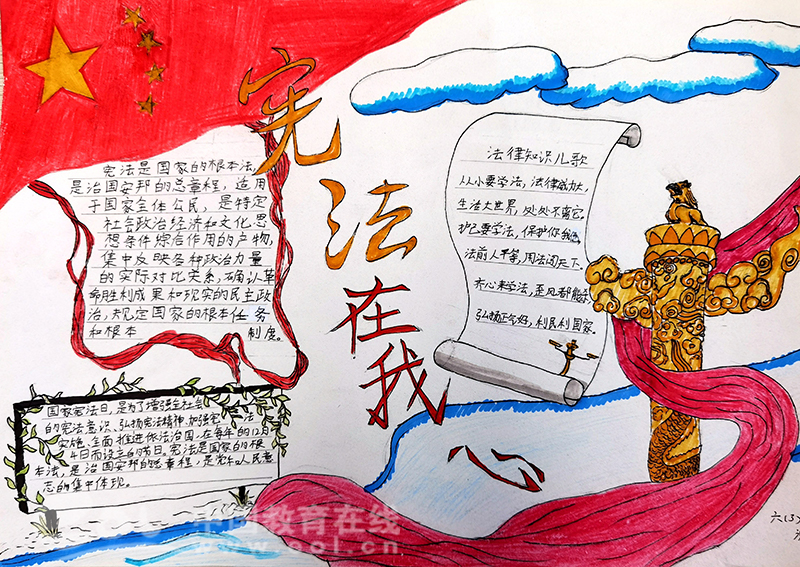 宪法在我心
宪法是国家的根本法,
是治国安邦的总章程，适用
于国家全体公民，是特定
社会政治经济和文化思
想条件综合作用的产物,
集中反映各种政治力量
的实际对比关系，确认革
命胜利成果和现实的民主政
治，规定国家的根本任务
和根本 制度。
法律知识儿歌
从小要学法，法律威力大,
生活大世界，处处不离它。
护己要学法，保护你我他,
法前人平等，用法闯天下。
齐心来学法，歪风都能杀
弘扬正气好，利民利国家。
国家宪法日，是为了增强全社会
的宪法意识、弘扬宪法精神、加强宪法
实施、全面推进依法治国，在每年的12月
4日而设立的节日。宪法是国家的根
本法，是治国安邦的总章程，是党和人民意
志的集中体现。
六(3)
中国教育在线
www.eol.cn